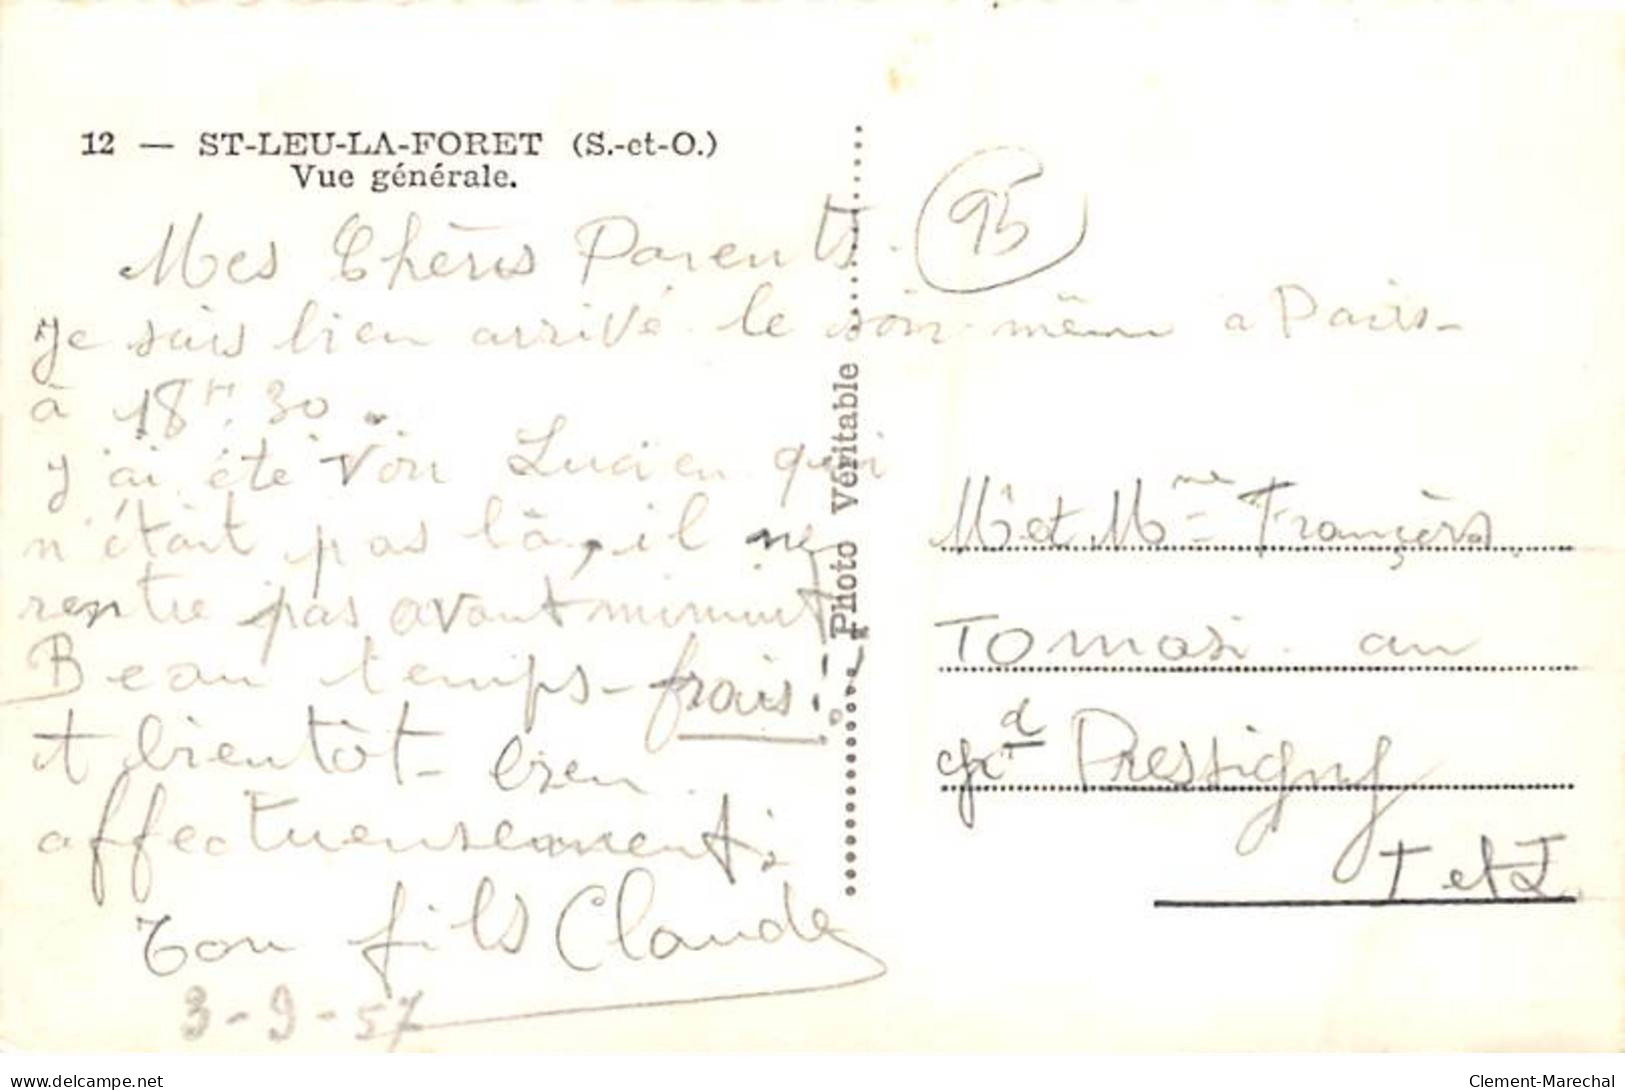 12 — ST-LEU-LA-FORET (S.-et-O.)
Vue générale.
95
Mes Chèrs Parents.
Je suis bien arrivé le soir même a Paris-
à 18H 30.
J'ai été voir Lucien qui
n'était pas là, il ne
rentre pas avant minuit
Beau temps-frais.
A bientôt- bien
affectueusement.
Ton fils Claude
3-9-57
Photo Véritable
Mr et Mme François
Tomasi au
Gd Pressigny
I et L.
delcampe.net
Clement-Marechal